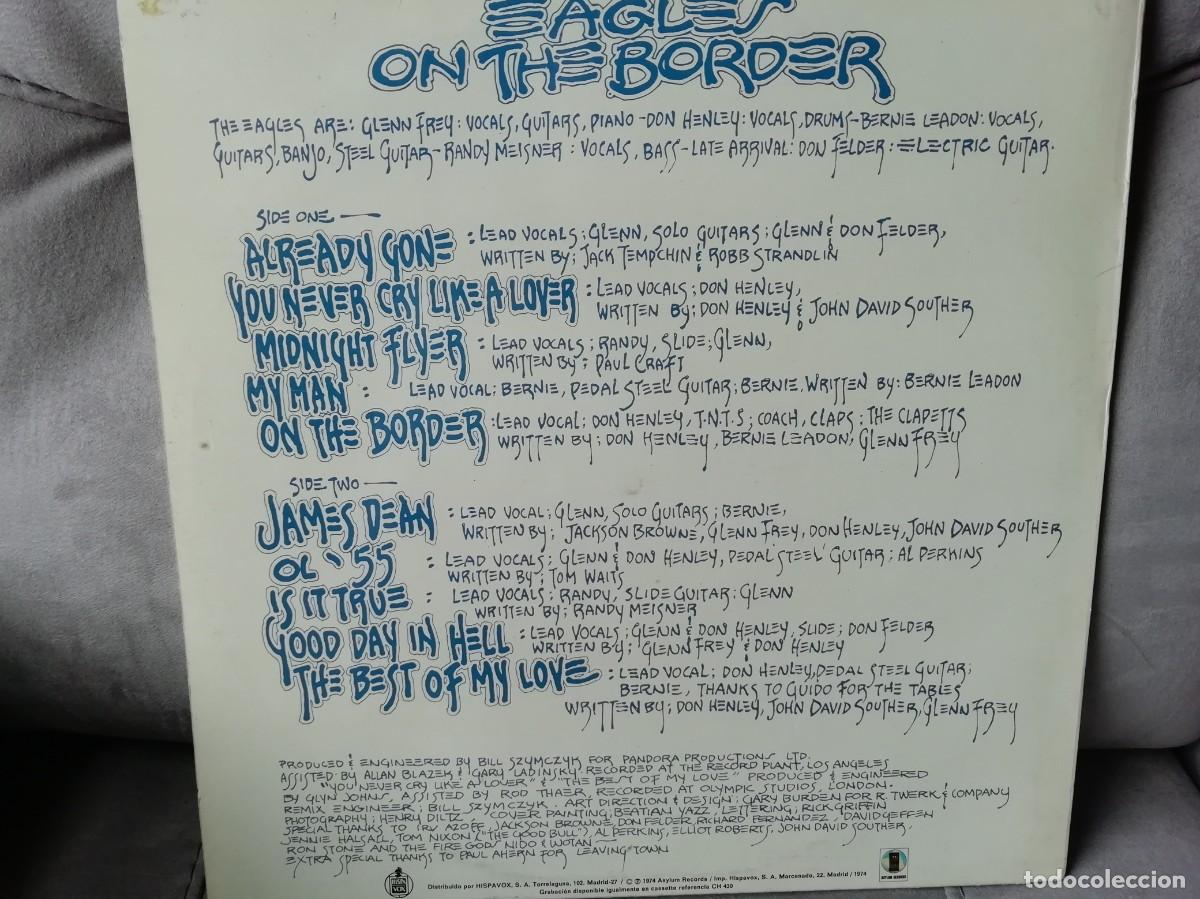 EAGLES
ON THE BORDER
THE EAGLES ARE: GLENN FREY: VOCALS, GUITARS, PIANO - DON HENLEY: VOCALS, DRUMS - BERNIE LEADON: VOCALS,
GUITARS, BANJO, STEEL GUITAR - RANDY MEISNER: VOCALS, BASS - LATE ARRIVAL: DON FELDER: ELECTRIC GUITAR.
SIDE ONE —
ALREADY GONE : LEAD VOCALS; GLENN, SOLO GUITARS; GLENN & DON FELDER,
WRITTEN BY; JACK TEMPCHIN & ROBB STRANDLIN
YOU NEVER CRY LIKE A LOVER : LEAD VOCALS; DON HENLEY,
WRITTEN BY; DON HENLEY & JOHN DAVID SOUTHER
MIDNIGHT FLYER : LEAD VOCALS; RANDY, SLIDE; GLENN,
WRITTEN BY; PAUL CRAFT
MY MAN : LEAD VOCAL; BERNIE, PEDAL STEEL GUITAR; BERNIE, WRITTEN BY: BERNIE LEADON
ON THE BORDER : LEAD VOCAL: DON HENLEY, T.N.T.S; COACH, CLAPS: THE CLAPETTS
WRITTEN BY; DON HENLEY, BERNIE LEADON, GLENN FREY
SIDE TWO —
JAMES DEAN : LEAD VOCAL; GLENN, SOLO GUITARS; BERNIE,
WRITTEN BY; JACKSON BROWNE, GLENN FREY, DON HENLEY, JOHN DAVID SOUTHER
OL '55 : LEAD VOCALS; GLENN & DON HENLEY, PEDAL STEEL GUITAR; AL PERKINS
WRITTEN BY; TOM WAITS
IS IT TRUE : LEAD VOCALS; RANDY, SLIDE GUITAR: GLENN
WRITTEN BY; RANDY MEISNER
GOOD DAY IN HELL : LEAD VOCALS; GLENN & DON HENLEY, SLIDE; DON FELDER
WRITTEN BY; GLENN FREY & DON HENLEY
THE BEST OF MY LOVE : LEAD VOCAL; DON HENLEY, PEDAL STEEL GUITAR;
BERNIE, THANKS TO GUIDO FOR THE TABLES
WRITTEN BY; DON HENLEY, JOHN DAVID SOUTHER, GLENN FREY
PRODUCED & ENGINEERED BY BILL SZYMCZYK FOR PANDORA PRODUCTIONS LTD.
ASSISTED BY ALLAN BLAZEK & GARY LADINSKY. RECORDED AT THE RECORD PLANT, LOS ANGELES
"YOU NEVER CRY LIKE A LOVER" & "THE BEST OF MY LOVE" PRODUCED & ENGINEERED
BY GLYN JOHNS, ASSISTED BY ROD THAER, RECORDED AT OLYMPIC STUDIOS, LONDON.
REMIX ENGINEER; BILL SZYMCZYK. ART DIRECTION & DESIGN; GARY BURDEN FOR R. TWERK & COMPANY
PHOTOGRAPHY; HENRY DILTZ, COVER PAINTING; BEATIAN YAZZ, LETTERING, RICK GRIFFIN
SPECIAL THANKS TO IRV AZOFF, JACKSON BROWNE, DON FELDER, RICHARD FERNANDEZ, DAVID GEFFEN
JENNIE HALSALL, TOM NIXON ("THE GOOD BULL"), AL PERKINS, ELLIOT ROBERTS, JOHN DAVID SOUTHER,
RON STONE AND THE FIRE GODS NIDO & WOTAN —
EXTRA SPECIAL THANKS TO PAUL AHERN FOR LEAVING TOWN
HISPAVOX
Distribuido por HISPAVOX, S. A. Torrelaguna, 102. Madrid-27 / © ℗ 1974 Asylum Records / Imp. Hispavox, S. A. Marcenado, 22. Madrid / 1974
Grabación disponible igualmente en cassette referencia CH 420
ASYLUM RECORDS
todocoleccion